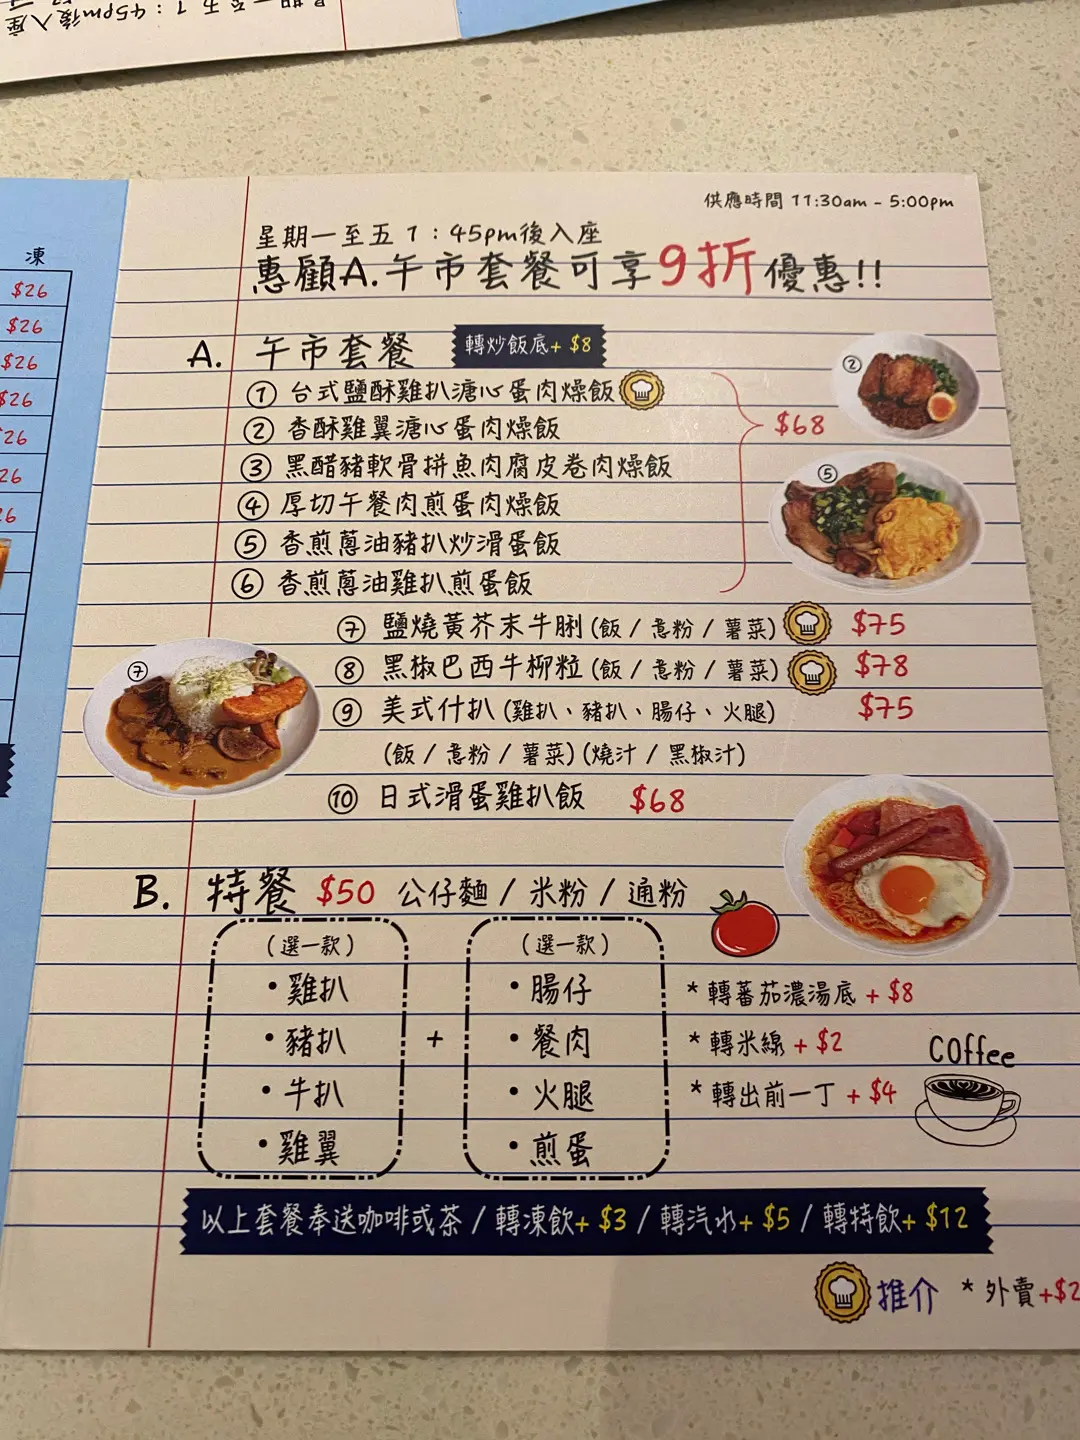 星期一至五 1：45pm後入座
凍
$26
$26
$26
$26
$26
$26
$26
供應時間 11:30am - 5:00pm
星期一至五 1：45pm後入座
惠顧A.午市套餐可享9折優惠!!
A. 午市套餐 轉炒飯底+ $8
① 台式鹽酥雞扒溏心蛋肉燥飯
② 香酥雞翼溏心蛋肉燥飯
③ 黑醋豬軟骨拼魚肉腐皮卷肉燥飯
④ 厚切午餐肉煎蛋肉燥飯
⑤ 香煎蔥油豬扒炒滑蛋飯
⑥ 香煎蔥油雞扒煎蛋飯
$68
②
⑤
⑦ 鹽燒黃芥末牛脷(飯 / 意粉 / 薯菜) $75
⑧ 黑椒巴西牛柳粒(飯 / 意粉 / 薯菜) $78
⑨ 美式什扒(雞扒、豬扒、腸仔、火腿) $75
(飯 / 意粉 / 薯菜)(燒汁 / 黑椒汁)
⑩ 日式滑蛋雞扒飯 $68
⑦
B. 特餐 $50 公仔麵 / 米粉 / 通粉
(選一款)
・雞扒
・豬扒
・牛扒
・雞翼
+
(選一款)
・腸仔
・餐肉
・火腿
・煎蛋
* 轉蕃茄濃湯底 + $8
* 轉米線 + $2
* 轉出前一丁 + $4
Coffee
以上套餐奉送咖啡或茶 / 轉凍飲+ $3 / 轉汽水+ $5 / 轉特飲+ $12
推介 * 外賣+$2